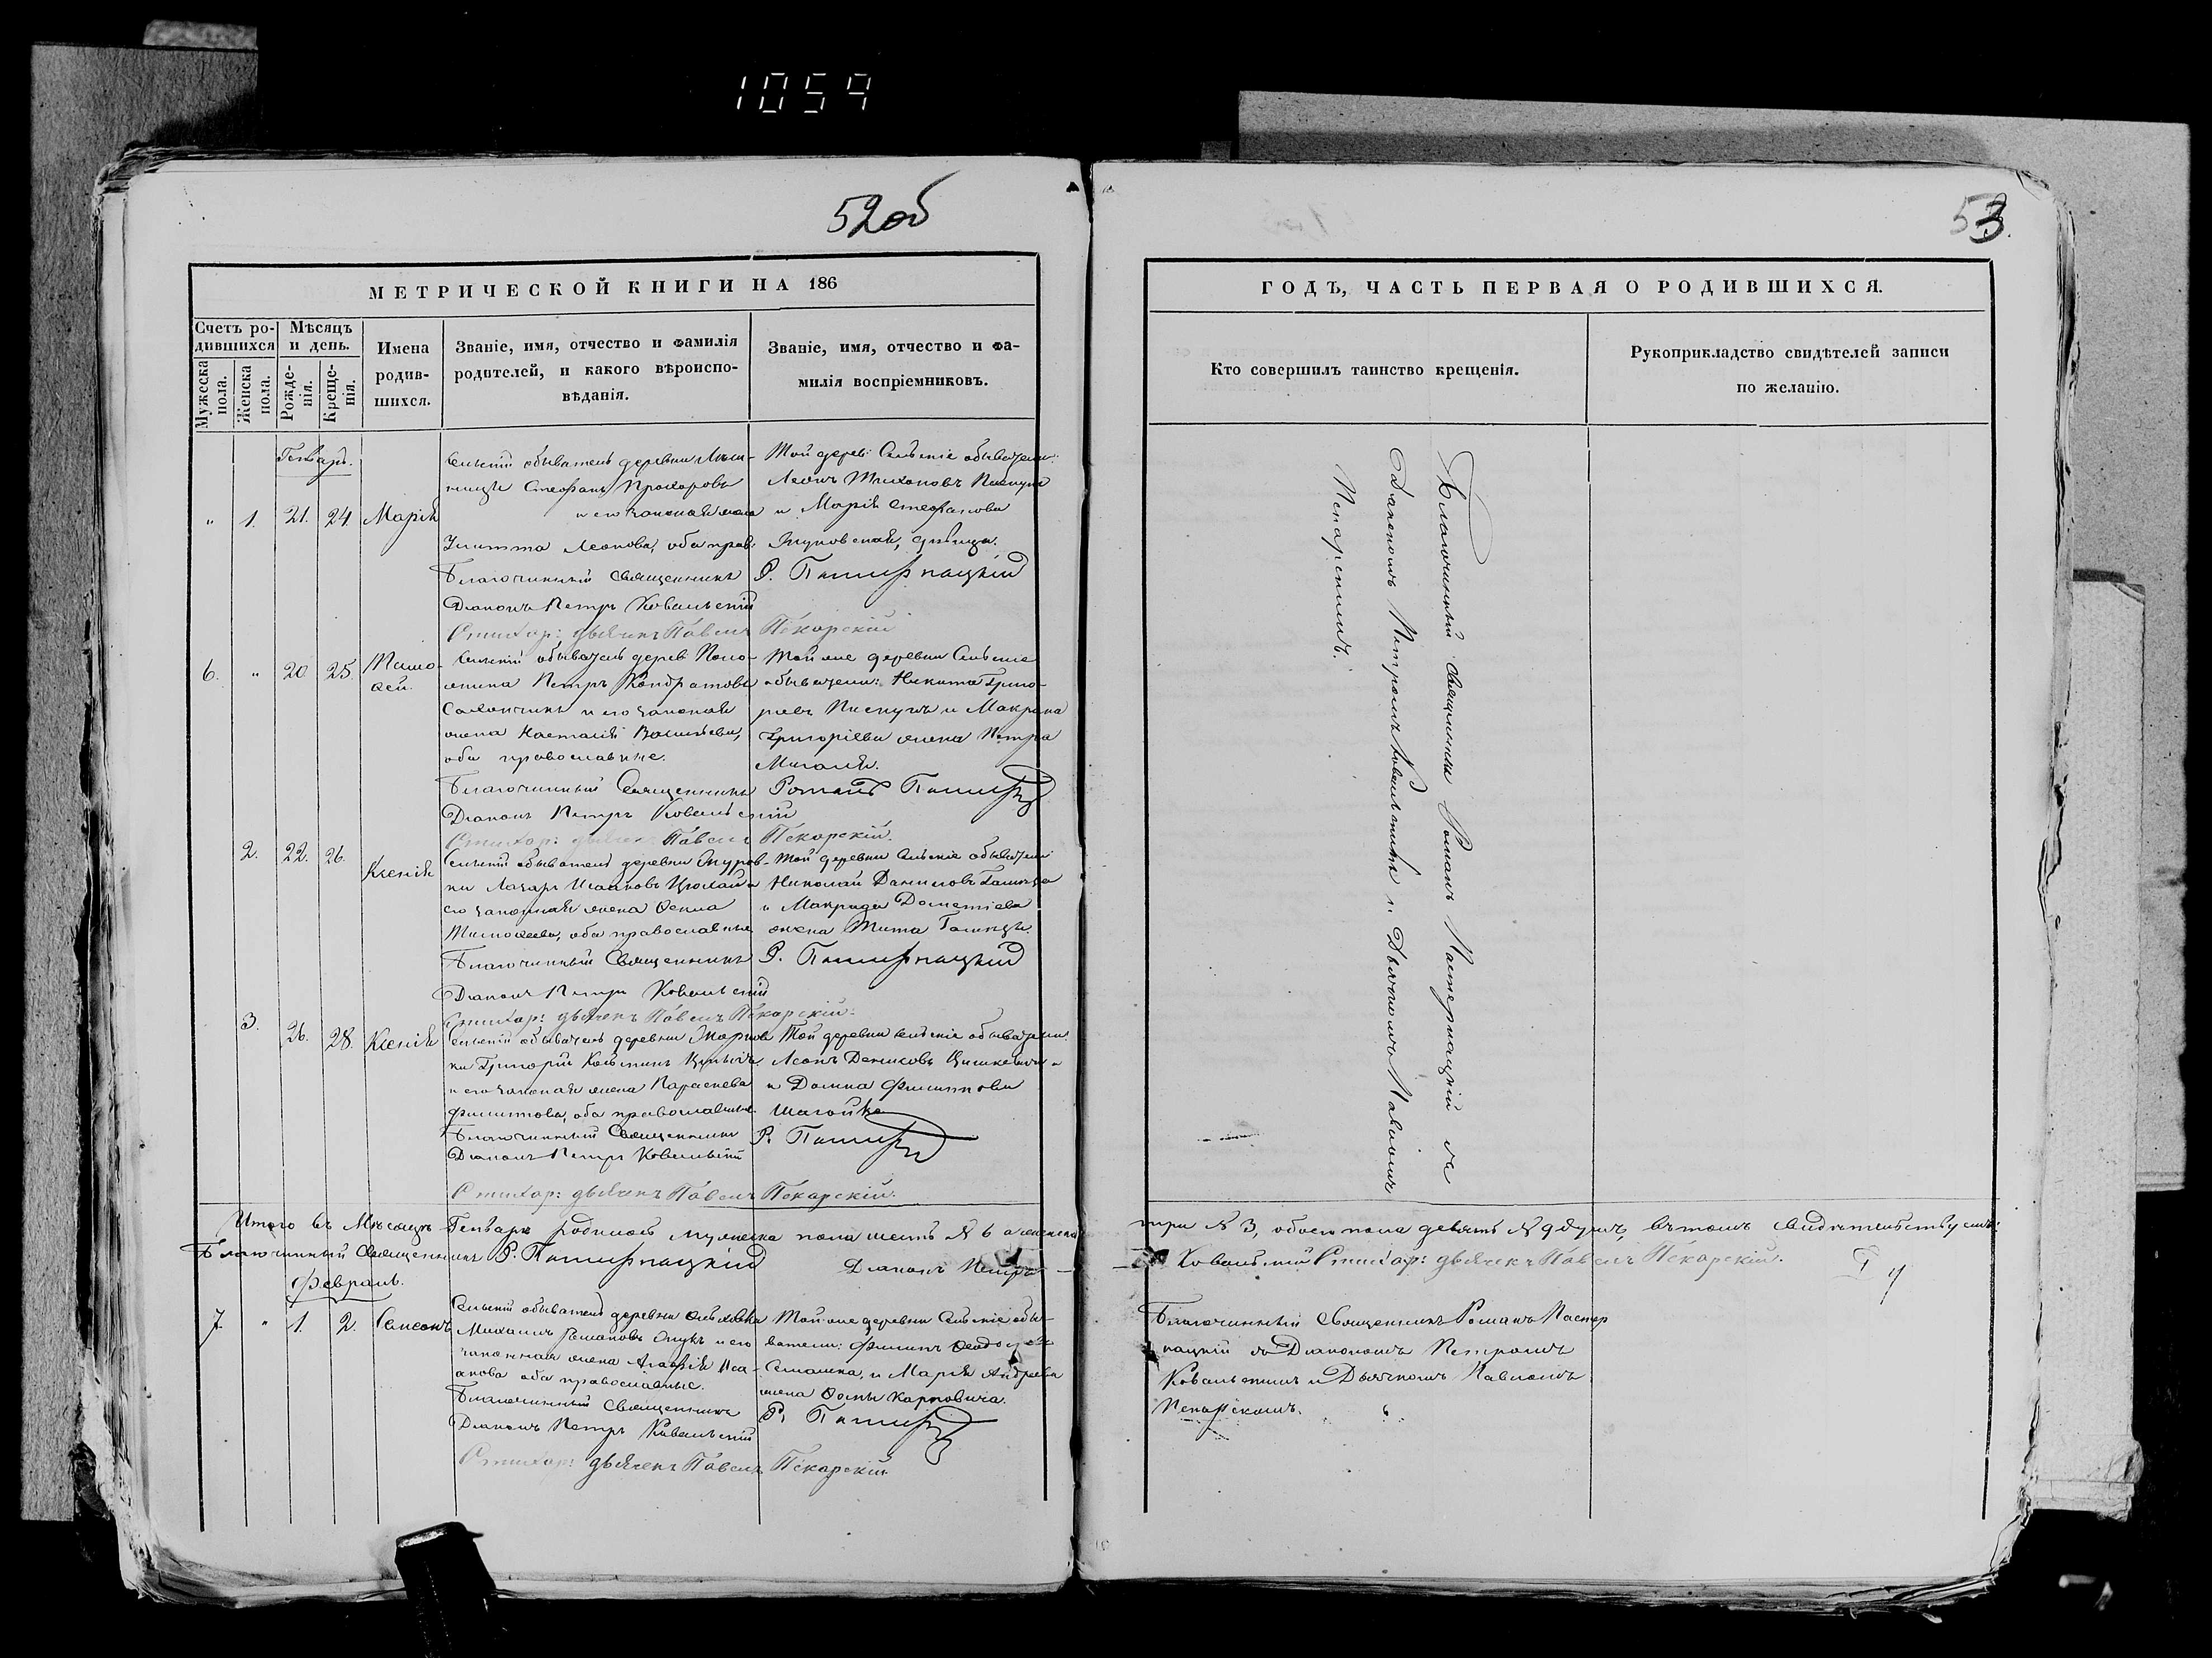 1059
52об
53.
МЕТРИЧЕСКОЙ КНИГИ НА 186
Счетъ родившихся
Мужеска пола.
Женска пола.
Мѣсяцъ и день.
Рожденія.
Крещенія.
Имена родившихся.
Званіе, имя, отчество и фамилія
родителей, и какого вѣроиспо-
вѣданія.
Званіе, имя, отчество и фа-
милія воспріемниковъ.
Генварь.
" 1. 21. 24 Марія
Сельскій обыватель деревни
Стефанъ Прохоровъ
и его законная жена
Улитта Леонова, оба прав.
Той дерев: Сельскіе обыватели:
Леонъ Тихоновъ Пискунъ
и Марія Стефанова
девица.
Благочинный Священникъ Р. Пастернацкій
Діаконъ Петръ Ковальскій
Стихар: дьячекъ Павелъ Пекарскій
6. " 20 25. Тимо-
ѳей.
Сельскій обыватель дерев:
Петръ Кондратовъ
и его законная
жена Наталія Васильева,
оба православные.
Той же деревни Сельскіе
обыватели: Никита Григо-
рьевъ Пискунъ и Макрина
Григоріева жена Петра
Благочинный Священникъ Романъ
Діаконъ Петръ Ковальскій
Стихар: дьячекъ Павелъ Пекарскій.
2. 22. 26. Ксенія
Сельскій обыватель деревни
Лазарь Исааковъ
его законная жена Ѳекла
Тимоѳеева, оба православные
Той деревни Сельскіе обыватели
Николай Даниловъ
и Макрида Дометіева
жена Тита
Благочинный Священникъ Р. Пастернацкій
Діаконъ Петръ Ковальскій
Стихар: дьячекъ Павелъ Пекарскій.
3. 26. 28. Ксенія
Сельскій обыватель деревни
Григорій Козьминъ
и его законная жена Параскева
Филиппова, оба православные.
Той деревни сельскіе обыватели:
Леонъ Денисовъ
и Домна Филиппова
Благочинный Священникъ
Діаконъ Петръ Ковальскій
Стихар: дьячекъ Павелъ Пекарскій.
Итого въ Мѣсяцѣ Генварѣ родилось мужеска пола шесть № 6 а женска
Благочинный Священникъ Р. Пастернацкій Діаконъ Петръ
Февраль.
7. " 1. 2. Симеонъ
Сельскій обыватель деревни
Михаилъ Романовъ и его
законная жена Агафія Иса-
акова оба православные.
Той же деревни Сельскіе обы-
ватели: Филиппъ
и Марія Андреева
жена Ѳомы Карповича.
Благочинный Священникъ
Діаконъ Петръ Ковальскій
Стихар: дьячекъ Павелъ Пекарскій
ГОДЪ, ЧАСТЬ ПЕРВАЯ О РОДИВШИХСЯ.
Кто совершилъ таинство крещенія.
Рукоприкладство свидѣтелей записи
по желанію.
Благочинный Священникъ Романъ Пастернацкій съ
Діакономъ Петромъ Ковальскимъ и Дьячкомъ Павломъ
Пекарскимъ.
три № 3, обоего пола девять № 9 душъ, въ томъ свидѣтельствуемъ:
Ковальскій Стихар: дьячекъ Павелъ Пекарскій.
Благочинный Священникъ Романъ Пастер
нацкій съ Діакономъ Петромъ
Ковальскимъ и Дьячкомъ Павломъ
Пекарскимъ.